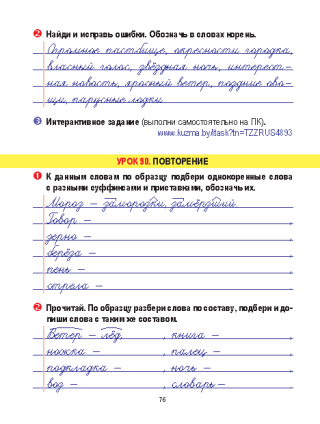 2 Найди и исправь ошибки. Обозначь в словах корень.
Огромное пастбище, окресности городка,
власный голос, звёздная ночь, интерест-
ная новость, яросный ветер, поздние ово-
щи, парусные лодки
3 Интерактивное задание (выполни самостоятельно на ПК).
www.kuzma.by/ttask?tn=TZZRUS4893
УРОК 90. ПОВТОРЕНИЕ
1 К данным словам по образцу подбери однокоренные слова
с разными суффиксами и приставками, обозначь их.
Мороз – заморозки, замёрзший.
Говор – ,
зерно – ,
берёза – ,
пень – ,
стрела – .
2 Прочитай. По образцу разбери слова по составу, подбери и до-
пиши слова с таким же составом.
Ветер – лёд, , книга – ,
ножка – , палец – ,
подкладка – , ночь – ,
воз – , словарь – .
76